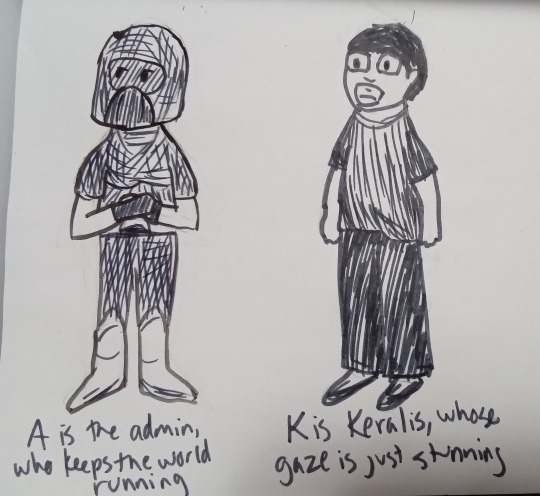 A is the admin,
who keeps the world
running
K is Keralis, whose
gaze is just stunning